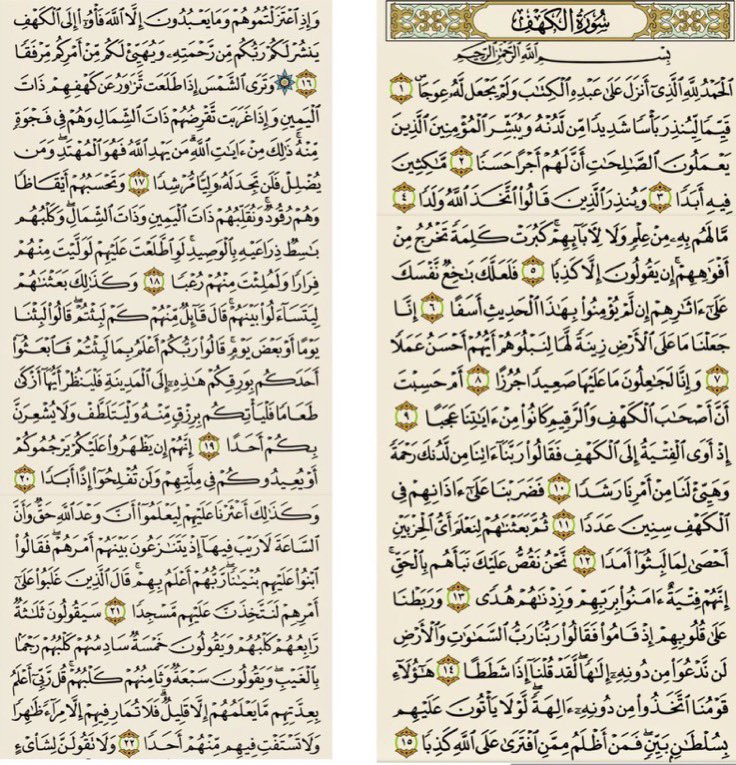 سُورَةُ الكَهْفِ
بِسْمِ اللَّهِ الرَّحْمَٰنِ الرَّحِيمِ
الْحَمْدُ لِلَّهِ الَّذِي أَنزَلَ عَلَىٰ عَبْدِهِ الْكِتَابَ وَلَمْ يَجْعَل لَّهُ عِوَجًا ۜ ١
قَيِّمًا لِّيُنذِرَ بَأْسًا شَدِيدًا مِّن لَّدُنْهُ وَيُبَشِّرَ الْمُؤْمِنِينَ الَّذِينَ
يَعْمَلُونَ الصَّالِحَاتِ أَنَّ لَهُمْ أَجْرًا حَسَنًا ٢ مَّاكِثِينَ
فِيهِ أَبَدًا ٣ وَيُنذِرَ الَّذِينَ قَالُوا اتَّخَذَ اللَّهُ وَلَدًا ٤
مَّا لَهُم بِهِ مِنْ عِلْمٍ وَلَا لِآبَائِهِمْ ۚ كَبُرَتْ كَلِمَةً تَخْرُجُ مِنْ
أَفْوَاهِهِمْ ۚ إِن يَقُولُونَ إِلَّا كَذِبًا ٥ فَلَعَلَّكَ بَاخِعٌ نَّفْسَكَ
عَلَىٰ آثَارِهِمْ إِن لَّمْ يُؤْمِنُوا بِهَٰذَا الْحَدِيثِ أَسَفًا ٦ إِنَّا
جَعَلْنَا مَا عَلَى الْأَرْضِ زِينَةً لَّهَا لِنَبْلُوَهُمْ أَيُّهُمْ أَحْسَنُ عَمَلًا
٧ وَإِنَّا لَجَاعِلُونَ مَا عَلَيْهَا صَعِيدًا جُرُزًا ٨ أَمْ حَسِبْتَ
أَنَّ أَصْحَابَ الْكَهْفِ وَالرَّقِيمِ كَانُوا مِنْ آيَاتِنَا عَجَبًا ٩
إِذْ أَوَى الْفِتْيَةُ إِلَى الْكَهْفِ فَقَالُوا رَبَّنَا آتِنَا مِن لَّدُنكَ رَحْمَةً
وَهَيِّئْ لَنَا مِنْ أَمْرِنَا رَشَدًا ١٠ فَضَرَبْنَا عَلَىٰ آذَانِهِمْ فِي
الْكَهْفِ سِنِينَ عَدَدًا ١١ ثُمَّ بَعَثْنَاهُمْ لِنَعْلَمَ أَيُّ الْحِزْبَيْنِ
أَحْصَىٰ لِمَا لَبِثُوا أَمَدًا ١٢ نَّحْنُ نَقُصُّ عَلَيْكَ نَبَأَهُم بِالْحَقِّ ۚ
إِنَّهُمْ فِتْيَةٌ آمَنُوا بِرَبِّهِمْ وَزِدْنَاهُمْ هُدًى ١٣ وَرَبَطْنَا
عَلَىٰ قُلُوبِهِمْ إِذْ قَامُوا فَقَالُوا رَبُّنَا رَبُّ السَّمَاوَاتِ وَالْأَرْضِ
لَن نَّدْعُوَ مِن دُونِهِ إِلَٰهًا ۖ لَّقَدْ قُلْنَا إِذًا شَطَطًا ١٤ هَٰؤُلَاءِ
قَوْمُنَا اتَّخَذُوا مِن دُونِهِ آلِهَةً ۖ لَّوْلَا يَأْتُونَ عَلَيْهِم
بِسُلْطَانٍ بَيِّنٍ ۖ فَمَنْ أَظْلَمُ مِمَّنِ افْتَرَىٰ عَلَى اللَّهِ كَذِبًا ١٥
وَإِذِ اعْتَزَلْتُمُوهُمْ وَمَا يَعْبُدُونَ إِلَّا اللَّهَ فَأْوُوا إِلَى الْكَهْفِ
يَنشُرْ لَكُمْ رَبُّكُم مِّن رَّحْمَتِهِ وَيُهَيِّئْ لَكُم مِّنْ أَمْرِكُم مِّرْفَقًا
١٦ ۞ وَتَرَى الشَّمْسَ إِذَا طَلَعَت تَّزَاوَرُ عَن كَهْفِهِمْ ذَاتَ
الْيَمِينِ وَإِذَا غَرَبَت تَّقْرِضُهُمْ ذَاتَ الشِّمَالِ وَهُمْ فِي فَجْوَةٍ
مِّنْهُ ۚ ذَٰلِكَ مِنْ آيَاتِ اللَّهِ ۗ مَن يَهْدِ اللَّهُ فَهُوَ الْمُهْتَدِ ۖ وَمَن
يُضْلِلْ فَلَن تَجِدَ لَهُ وَلِيًّا مُّرْشِدًا ١٧ وَتَحْسَبُهُمْ أَيْقَاظًا
وَهُمْ رُقُودٌ ۚ وَنُقَلِّبُهُمْ ذَاتَ الْيَمِينِ وَذَاتَ الشِّمَالِ ۖ وَكَلْبُهُم
بَاسِطٌ ذِرَاعَيْهِ بِالْوَصِيدِ ۚ لَوِ اطَّلَعْتَ عَلَيْهِمْ لَوَلَّيْتَ مِنْهُمْ
فِرَارًا وَلَمُلِئْتَ مِنْهُمْ رُعْبًا ١٨ وَكَذَٰلِكَ بَعَثْنَاهُمْ
لِيَتَسَاءَلُوا بَيْنَهُمْ ۚ قَالَ قَائِلٌ مِّنْهُمْ كَمْ لَبِثْتُمْ ۖ قَالُوا لَبِثْنَا
يَوْمًا أَوْ بَعْضَ يَوْمٍ ۚ قَالُوا رَبُّكُمْ أَعْلَمُ بِمَا لَبِثْتُمْ فَابْعَثُوا
أَحَدَكُم بِوَرِقِكُمْ هَٰذِهِ إِلَى الْمَدِينَةِ فَلْيَنظُرْ أَيُّهَا أَزْكَىٰ
طَعَامًا فَلْيَأْتِكُم بِرِزْقٍ مِّنْهُ وَلْيَتَلَطَّفْ وَلَا يُشْعِرَنَّ
بِكُمْ أَحَدًا ١٩ إِنَّهُمْ إِن يَظْهَرُوا عَلَيْكُمْ يَرْجُمُوكُمْ
أَوْ يُعِيدُوكُمْ فِي مِلَّتِهِمْ وَلَن تُفْلِحُوا إِذًا أَبَدًا ٢٠
وَكَذَٰلِكَ أَعْثَرْنَا عَلَيْهِمْ لِيَعْلَمُوا أَنَّ وَعْدَ اللَّهِ حَقٌّ وَأَنَّ
السَّاعَةَ لَا رَيْبَ فِيهَا إِذْ يَتَنَازَعُونَ بَيْنَهُمْ أَمْرَهُمْ ۖ فَقَالُوا
ابْنُوا عَلَيْهِم بُنْيَانًا ۖ رَّبُّهُمْ أَعْلَمُ بِهِمْ ۚ قَالَ الَّذِينَ غَلَبُوا عَلَىٰ
أَمْرِهِمْ لَنَتَّخِذَنَّ عَلَيْهِم مَّسْجِدًا ٢١ سَيَقُولُونَ ثَلَاثَةٌ
رَّابِعُهُمْ كَلْبُهُمْ وَيَقُولُونَ خَمْسَةٌ سَادِسُهُمْ كَلْبُهُمْ رَجْمًا
بِالْغَيْبِ ۖ وَيَقُولُونَ سَبْعَةٌ وَثَامِنُهُمْ كَلْبُهُمْ ۚ قُل رَّبِّي أَعْلَمُ
بِعِدَّتِهِم مَّا يَعْلَمُهُمْ إِلَّا قَلِيلٌ ۗ فَلَا تُمَارِ فِيهِمْ إِلَّا مِرَاءً ظَاهِرًا
وَلَا تَسْتَفْتِ فِيهِم مِّنْهُمْ أَحَدًا ٢٢ وَلَا تَقُولَنَّ لِشَايْءٍ